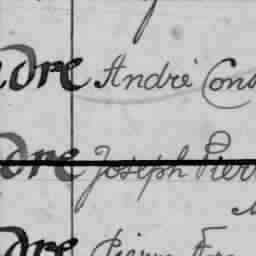 dre André Cons
dre Joseph Pierr
dre Pierre